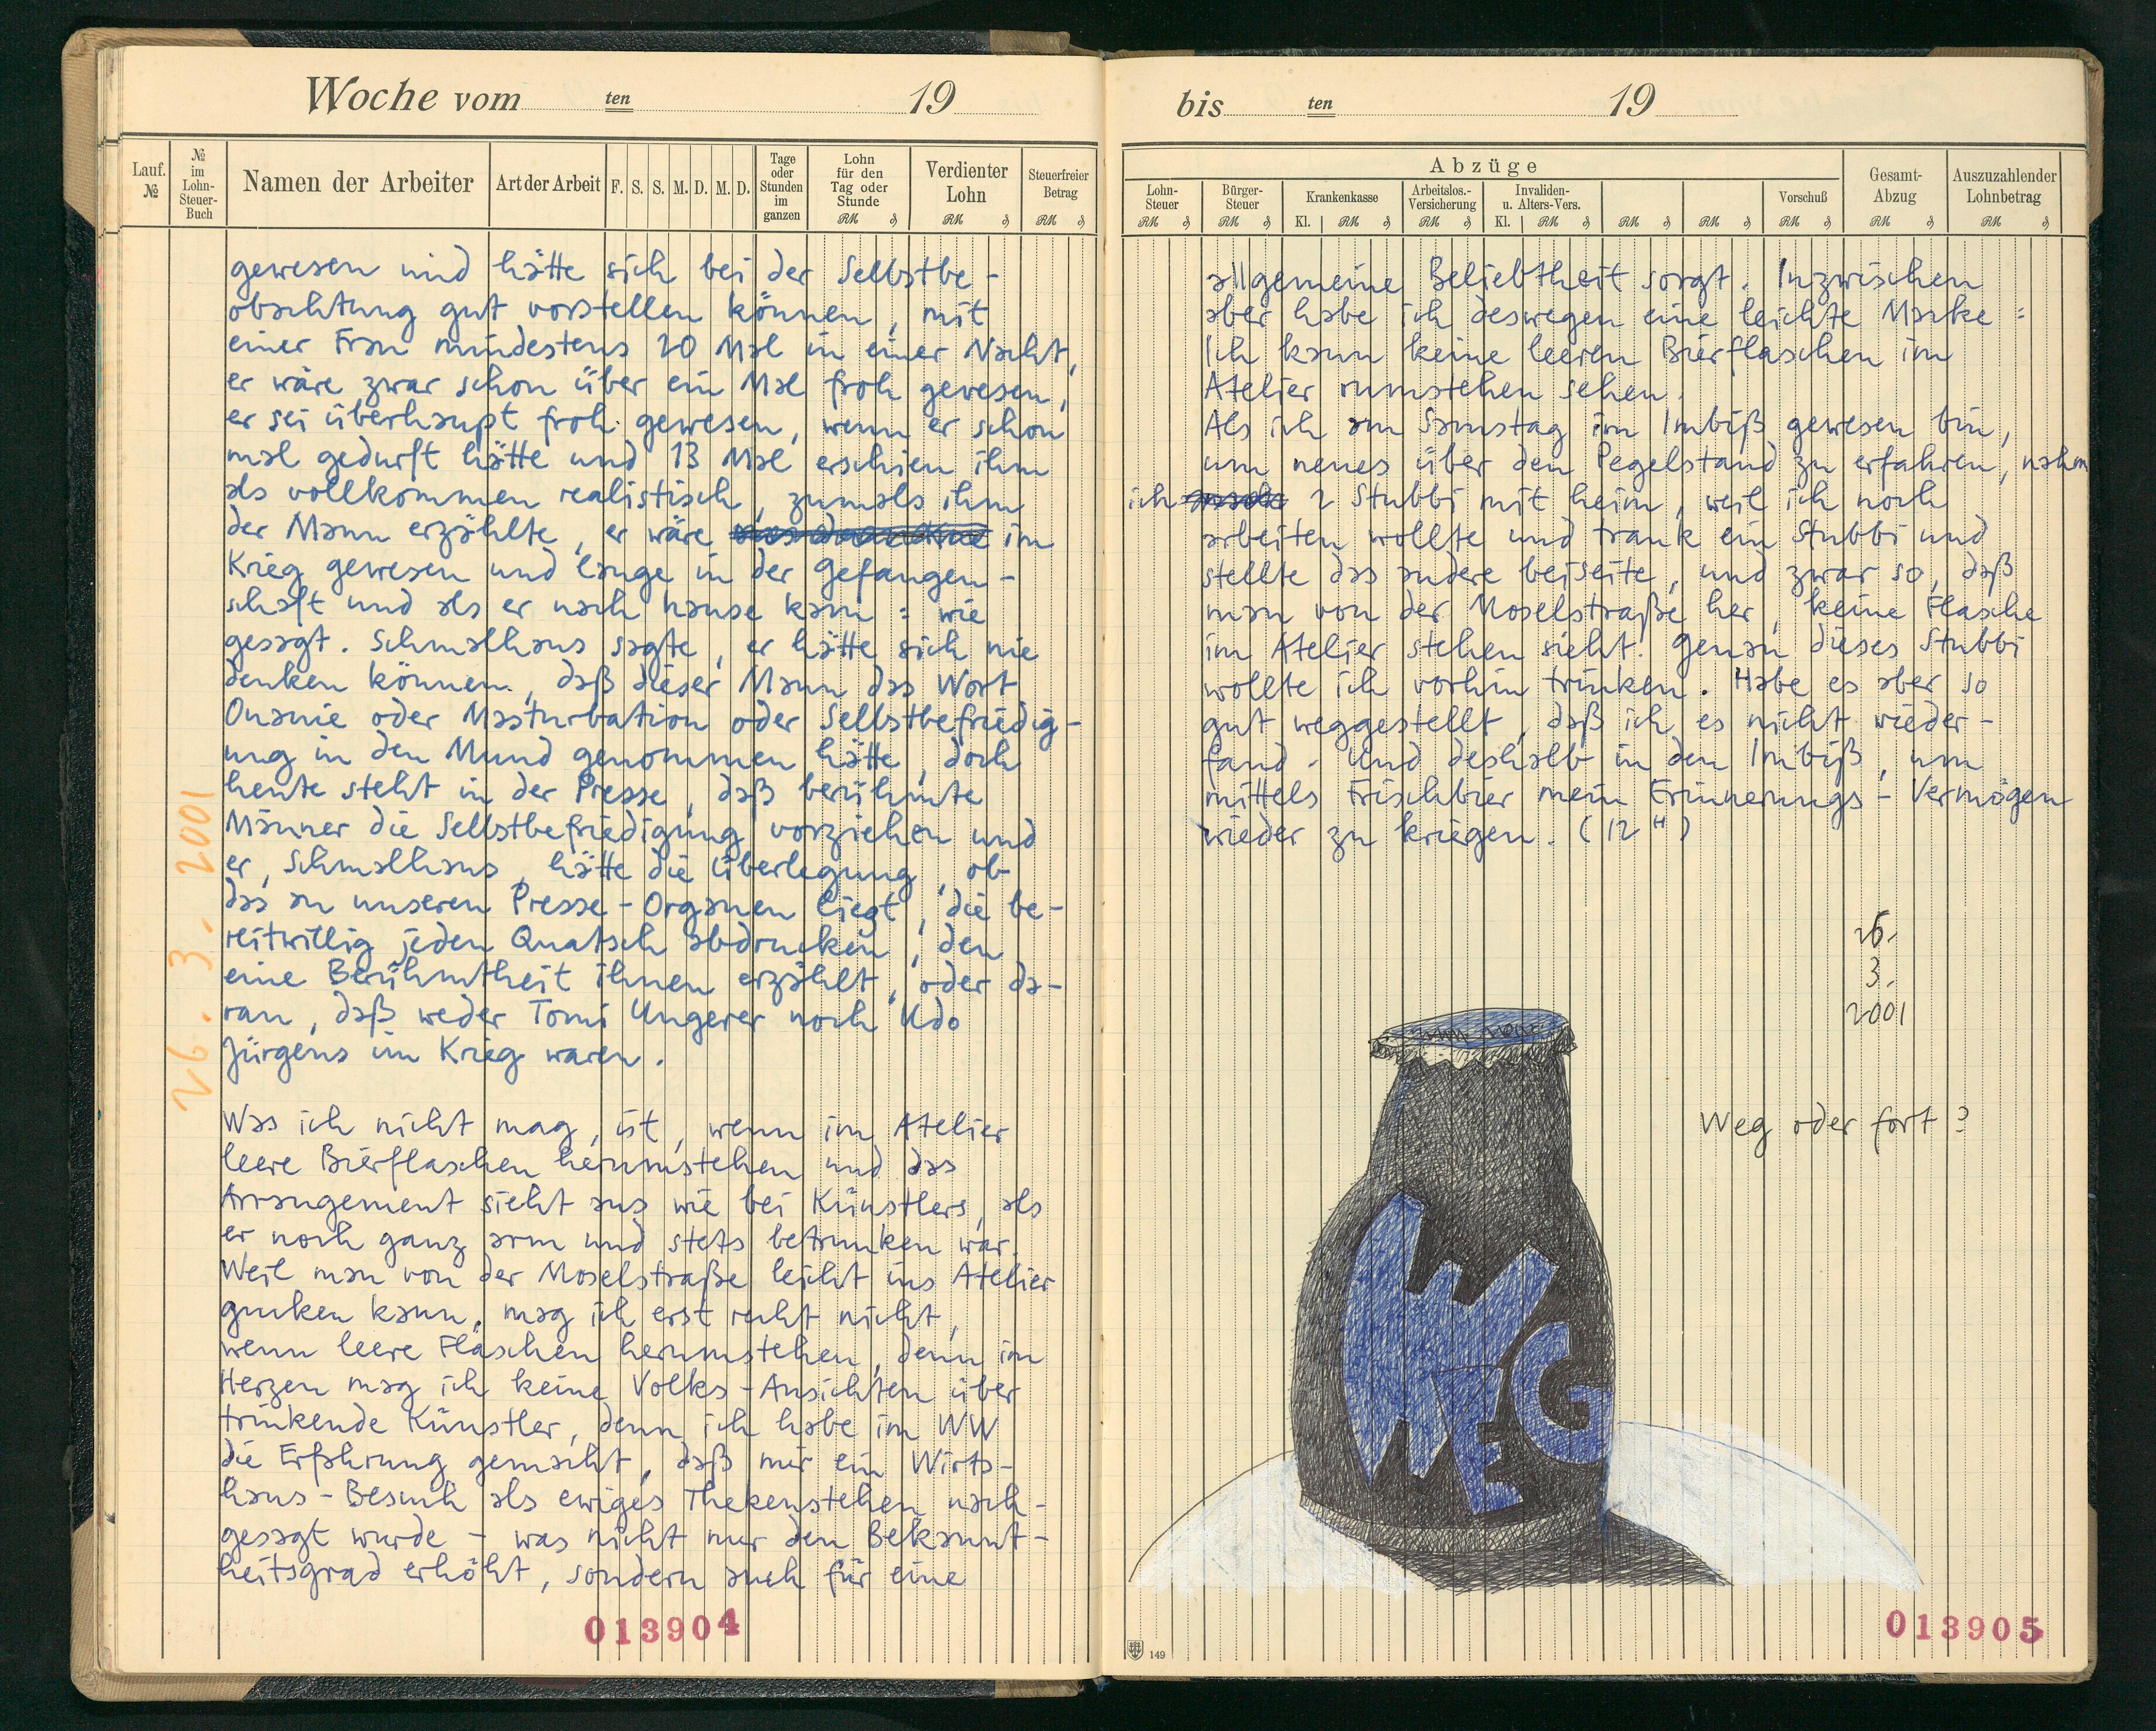 Woche vom ten 19
Lauf. №
№ im Lohn-Steuer-Buch
Namen der Arbeiter
Art der Arbeit
F. S. S. M. D. M. D.
Tage oder Stunden im ganzen
Lohn für den Tag oder Stunde
RM ₰
Verdienter Lohn
RM ₰
Steuerfreier Betrag
RM ₰
gewesen und hätte sich bei der Selbstbe-
obachtung gut vorstellen können, mit
einer Frau mindestens 20 Mal in einer Nacht,
er wäre zwar schon über ein Mal froh gewesen,
er sei überhaupt froh gewesen, wenn er schon
mal gedurft hätte und 13 Mal erschien ihm
als vollkommen realistisch, zumals ihm
der Mann erzählte, er wäre im
Krieg gewesen und lange in der Gefangen-
schaft und als er nach hause kam = wie
gesagt. Schmalhaus sagte, er hätte sich nie
denken können, daß dieser Mann das Wort
Onanie oder Masturbation oder Selbstbefriedig-
ung in den Mund genommen hätte, doch
heute steht in der Presse, daß berühmte
Männer die Selbstbefriedigung vorziehen und
er, Schmalhaus, hätte die Überlegung, ob
das an unseren Presse-Organen liegt, die be-
reitwillig jeden Quatsch abdrucken, den
eine Berühmtheit ihnen erzählt, oder da-
ran, daß weder Tomi Ungerer noch Udo
Jürgens im Krieg waren.
Was ich nicht mag, ist, wenn im Atelier
leere Bierflaschen herumstehen und das
Arrangement sieht aus wie bei Künstlers, als
er noch ganz arm und stets betrunken war.
Weil man von der Moselstraße leicht ins Atelier
gucken kann, mag ich erst recht nicht,
wenn leere Flaschen herumstehen, denn im
Herzen mag ich keine Volks-Ansichten über
trinkende Künstler, denn ich habe im WW
die Erfahrung gemacht, daß mir ein Wirts-
haus-Besuch als ewiges Thekenstehen nach-
gesagt wurde - was nicht nur den Bekannt-
heitsgrad erhöht, sondern auch für eine
26. 3. 2001
013904
bis ten 19
Abzüge
Lohn-Steuer
RM ₰
Bürger-Steuer
RM ₰
Krankenkasse
Kl. RM ₰
Arbeitslos.-Versicherung
RM ₰
Invaliden- u. Alters-Vers.
Kl. RM ₰
RM ₰
RM ₰
Vorschuß
RM ₰
Gesamt-Abzug
RM ₰
Auszuzahlender Lohnbetrag
RM ₰
allgemeine Beliebtheit sorgt. Inzwischen
aber habe ich deswegen eine leichte Macke =
Ich kann keine leeren Bierflaschen im
Atelier rumstehen sehen.
Als ich am Samstag im Imbiß gewesen bin,
um neues über den Pegelstand zu erfahren, nahm
ich 2 Stubbi mit heim, weil ich noch
arbeiten wollte und trank ein Stubbi und
stellte das andere beiseite, und zwar so, daß
man von der Moselstraße her, keine Flasche
im Atelier stehen sieht. Genau dieses Stubbi
wollte ich vorhin trinken. Habe es aber so
gut weggestellt, daß ich es nicht wieder-
fand. Und deshalb in den Imbiß, um
mittels Frischbier mein Erinnerungs-Vermögen
wieder zu kriegen. (12 H)
26.
3.
2001
Weg oder fort?
WEG
149
013905